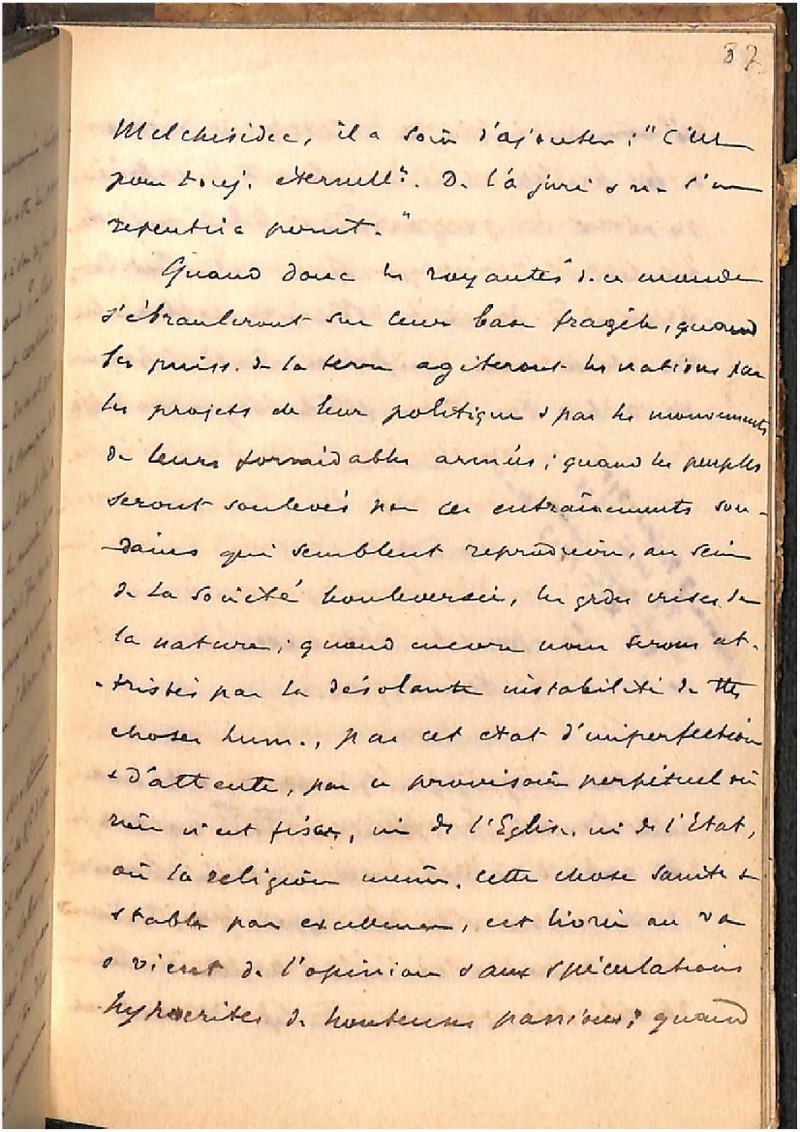 87
Melchisédec, il a soin d'ajouter : "C'est
pour touj. éternellt. D. l'a juré & ne s'en
repentira point."
Quand donc les royautés de ce monde
s'ébranleront sur leur base fragile, quand
les puiss. de la terre agiteront les nations par
les projets de leur politique & par les mouvements
de leurs formidables armées ; quand les peuples
seront soulevés par ces entraînements sou-
-dains qui semblent reproduire, au sein
de la société bouleversée, les grdes crises de
la nature ; quand encore nous serons at-
-tristés par la désolante instabilité de ttes
choses hum., par cet état d'imperfection
& d'attente, par ce provisoire perpétuel où
rien n'est fixé, ni de l'Eglise, ni de l'Etat,
où la religion même, cette chose sainte &
stable par excellence, est livrée au va
& vient de l'opinion & aux spéculations
hypocrites de honteuses passions ; quand